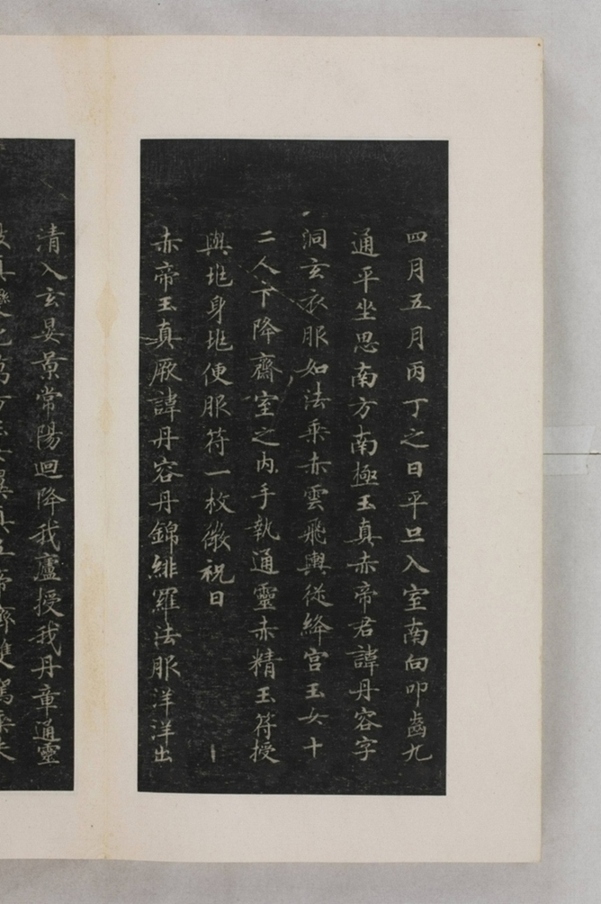 四月五月丙丁之日平旦入室南向叩齒九
通平坐思南方南極玉真赤帝君諱丹容字
洞玄衣服如法乘赤雲飛輿從絳宫玉女十
二人下降齋室之内手執通靈赤精玉符授
與地身地便服符一枚微祝曰
赤帝玉真厥諱丹容丹錦緋羅法服洋洋出
清入玄晏景常陽迴降我廬授我丹章通靈